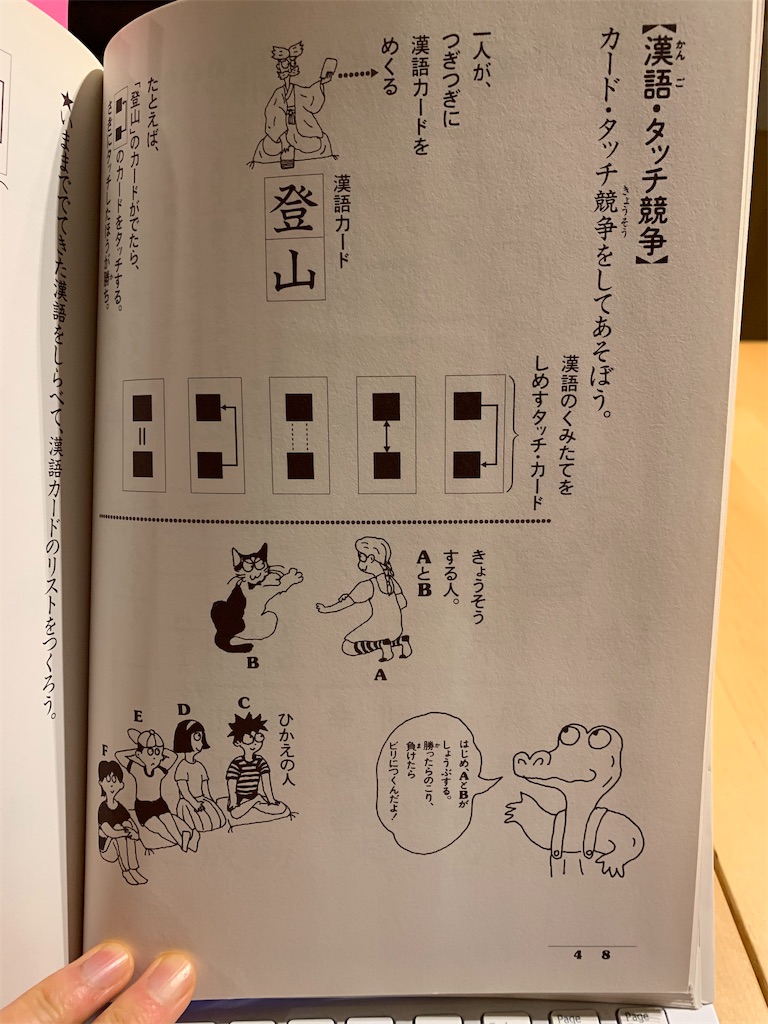 【漢語・タッチ競争】
かんご
カード・タッチ競争をしてあそぼう。
きょうそう
一人が、
つぎつぎに
漢語カードを
めくる
漢語カード
登山
たとえば、
「登山」のカードがでたら、
のカードをタッチする。
さきにタッチしたほうが勝ち。
漢語のくみたてを
しめすタッチ・カード
きょうそう
する人。
AとB
A
B
ひかえの人
C
D
E
F
はじめ、AとBが
しょうぶする。
勝ったらのこり、
か
負けたら
ま
ビリにつくんだよ!
48
★いままででてきた漢語をしらべて、漢語カードのリストをつくろう。
Page
Page